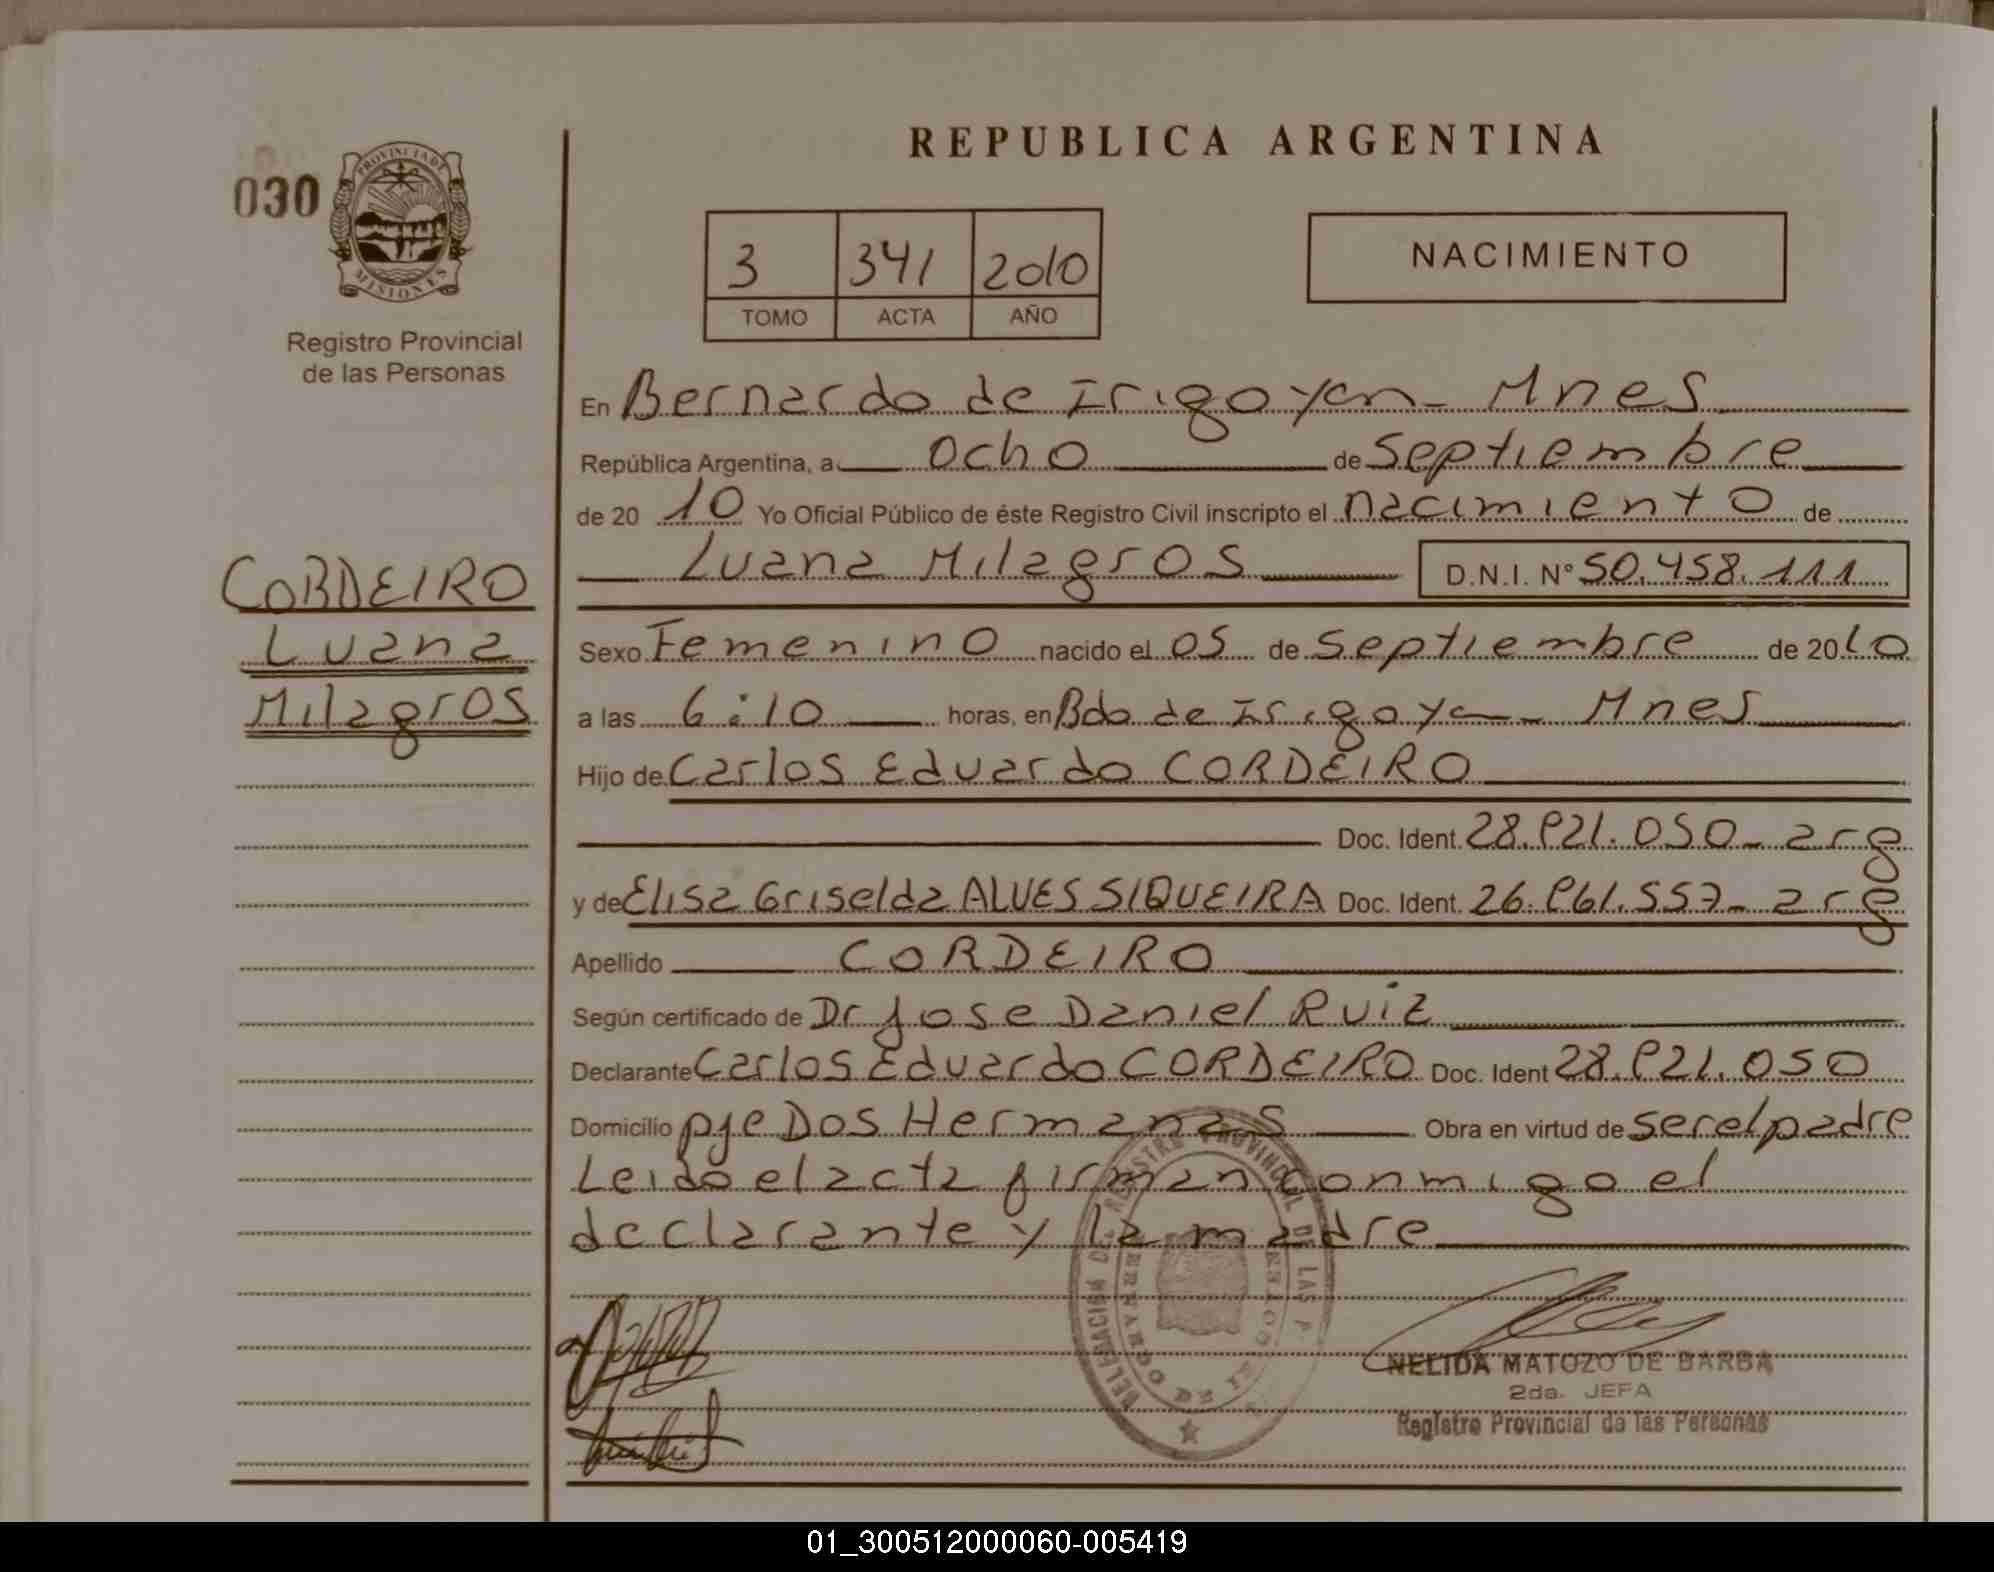 REPUBLICA ARGENTINA
030
PROVINCIA DE
MISIONES
Registro Provincial
de las Personas
3 341 2010
TOMO ACTA AÑO
NACIMIENTO
En Bernardo de Irigoyen - Mnes
República Argentina, a ocho de septiembre
de 20 10 Yo Oficial Público de éste Registro Civil inscripto el nacimiento de
Luana Milagros D.N.I. N° 50.458.111
CORDEIRO
Luana
Milagros
Sexo Femenino nacido el 05 de septiembre de 2010
a las 6:10 horas, en Bdo de Irigoyen - Mnes
Hijo de Carlos Eduardo CORDEIRO
Doc. Ident. 28.921.050 - arg
y de Elisa Griselda ALVES SIQUEIRA Doc. Ident. 26.961.557 - arg
Apellido CORDEIRO
Según certificado de Dr Jose Daniel Ruiz
Declarante Carlos Eduardo CORDEIRO Doc. Ident 28.921.050
Domicilio pje Dos Hermanas Obra en virtud de ser el padre
Leido el acta firman conmigo el
declarante y la madre
DELEGACION DEL REGISTRO PROVINCIAL DE LAS P
BERNARDO DE
NELIDA MATOZO DE BARBA
2da. JEFA
Registro Provincial de las Personas
01_300512000060-005419